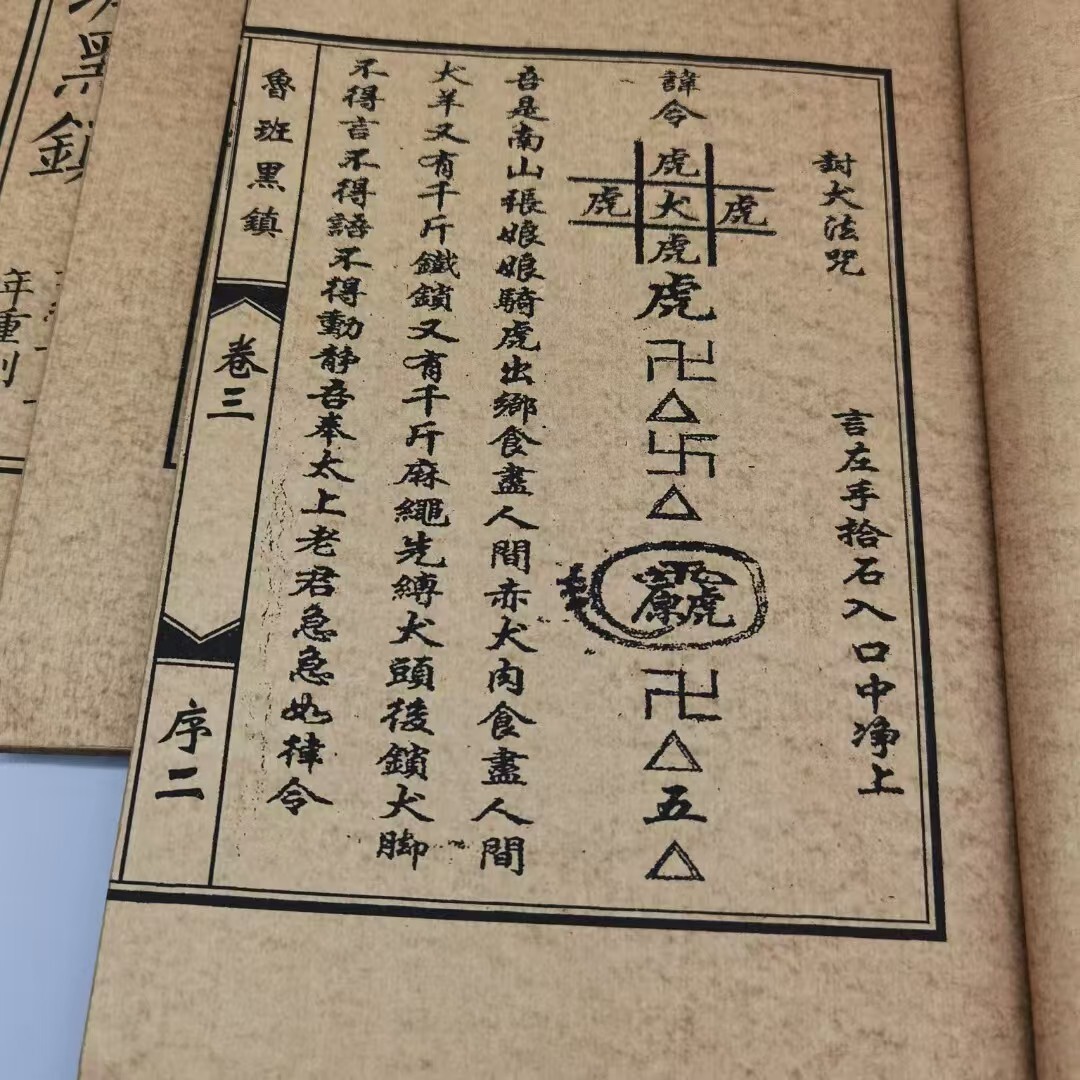 封犬法咒
言左手拾石入口中净上
諱令
虎
虎犬虎
虎
虎
卐
△
卍
△
卐
△
五
△
吾是南山張娘娘騎虎出鄉食盡人間赤犬肉食盡人間
犬羊又有千斤鐵鎖又有千斤麻繩先縛犬頭後鎖犬脚
不得言不得語不得動静吾奉太上老君急急如律令
魯班黑鎮
卷三
序二
黑鎖
年重刊